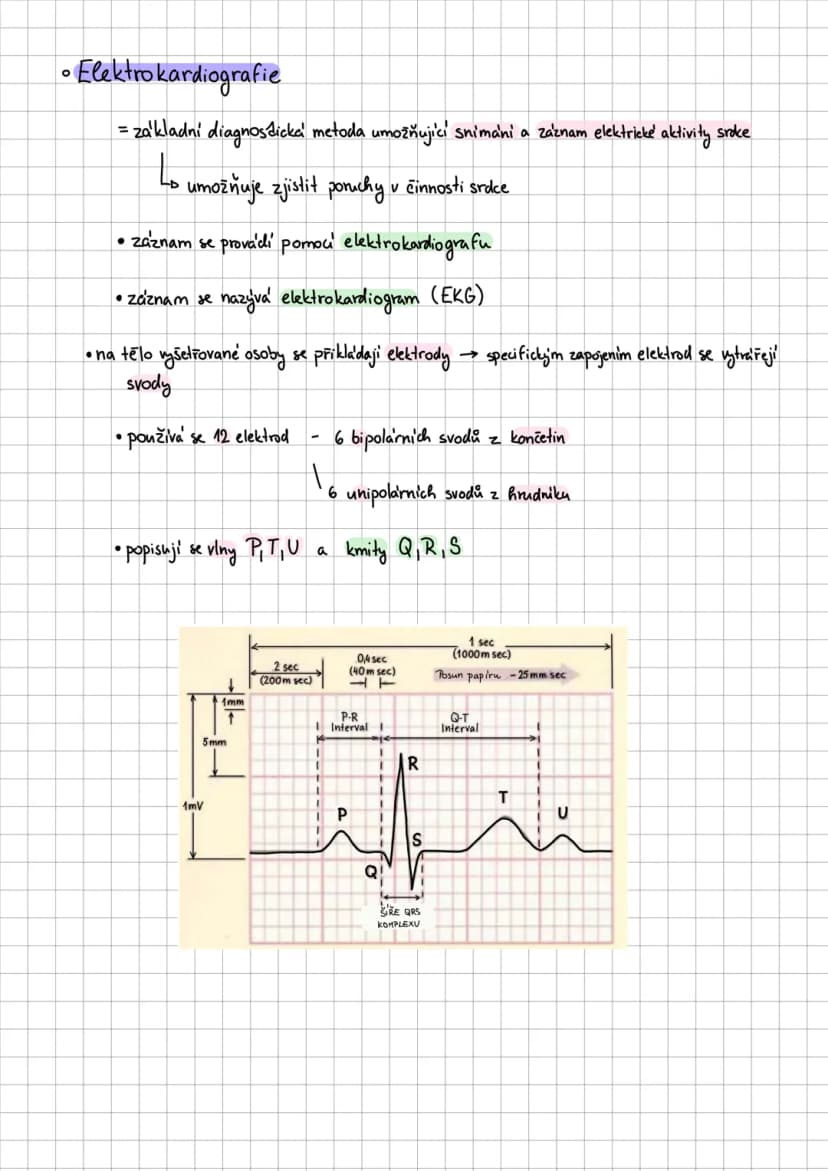 Elektrokardiografie
= základní diagnostická metoda umožňující snímání a záznam elektrické aktivity srdce
umožňuje zjistit poruchy v činnosti srdce
• záznam se provádí pomocí elektrokardiografu
• záznam se nazývá elektrokardiogram (EKG)
• na tělo vyšetřované osoby se přikládají elektrody → specifickým zapojením elektrod se vytvářejí
svody
• používá se 12 elektrod - 6 bipolárních svodů z končetin
6 unipolárních svodů z hrudníku
• popisují se vlny P, T, U a kmity Q, R, S
1 sec
(1000m sec)
2 sec
(200m sec)
0,4 sec
(40m sec)
Posun papíru - 25mm sec
1mm
5mm
1mV
P-R
Interval
Q-T
Interval
R
P
T
U
S
Q
ŠÍŘE QRS
KOMPLEXU